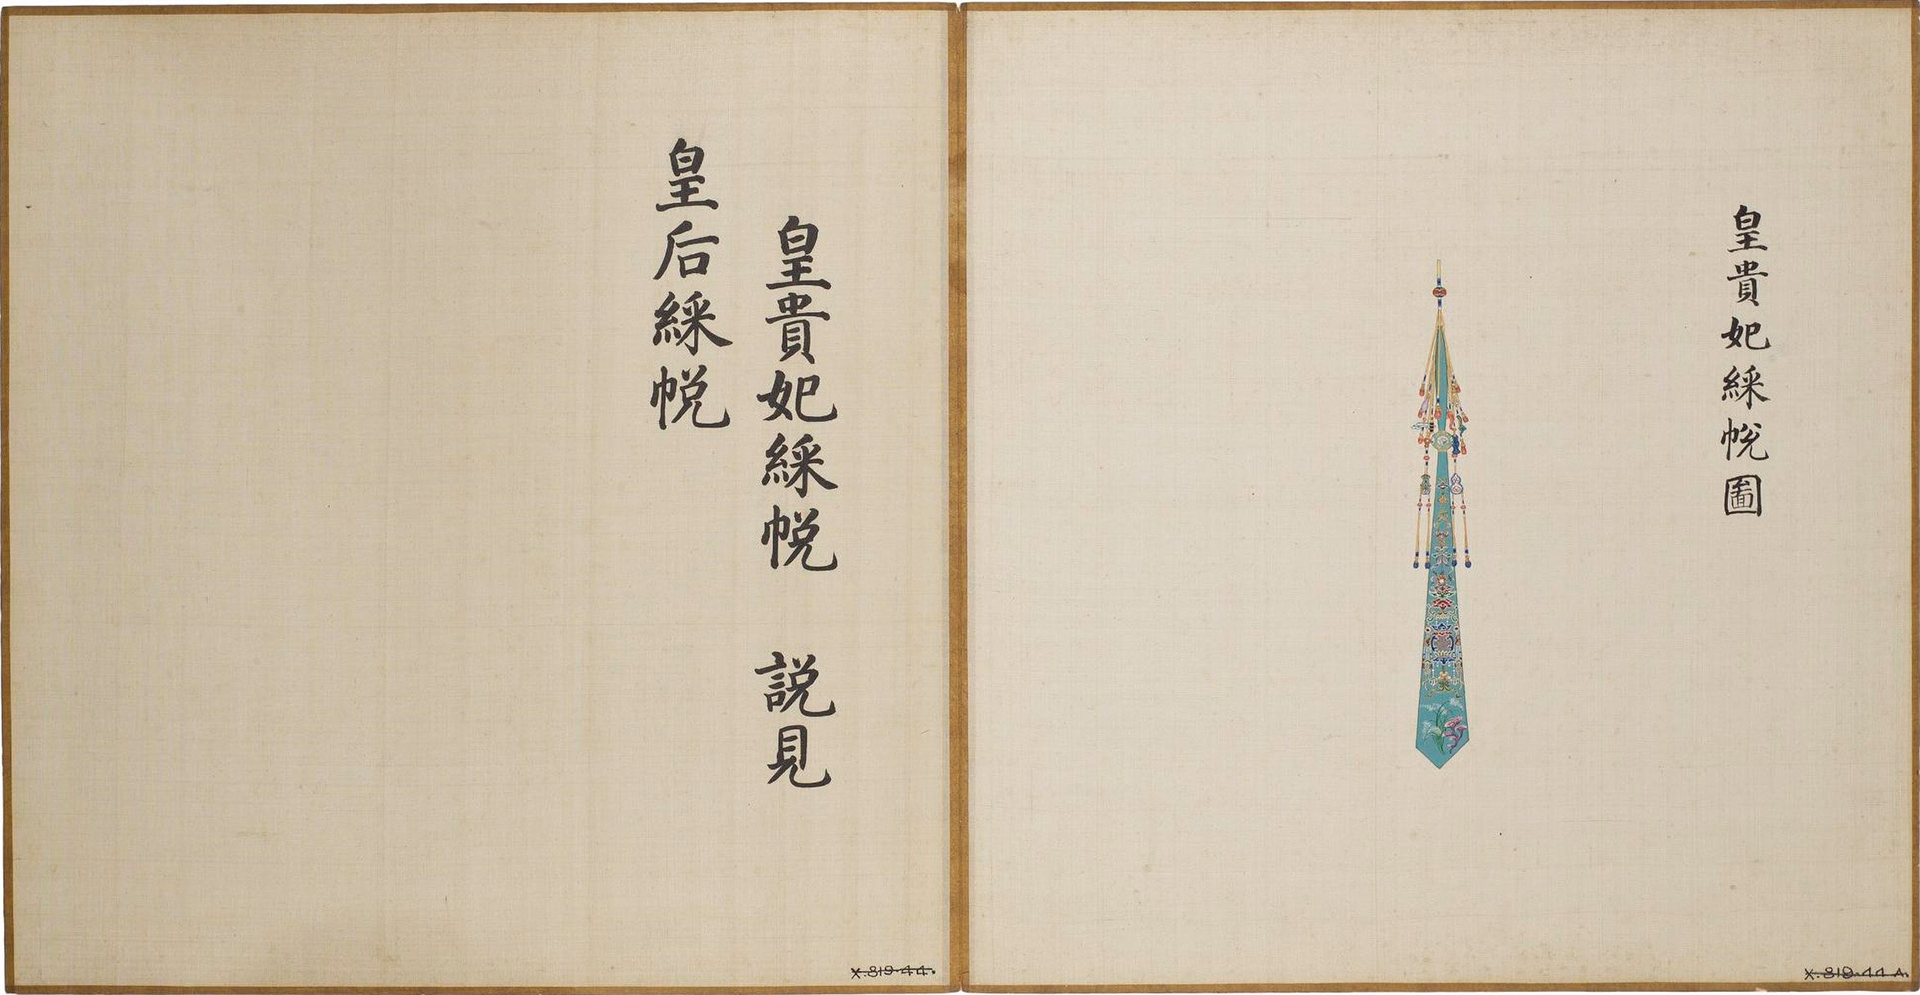 皇貴妃綵帨圖
皇貴妃綵帨　說見
皇后綵帨
X.819-44.
X.819-44 A.